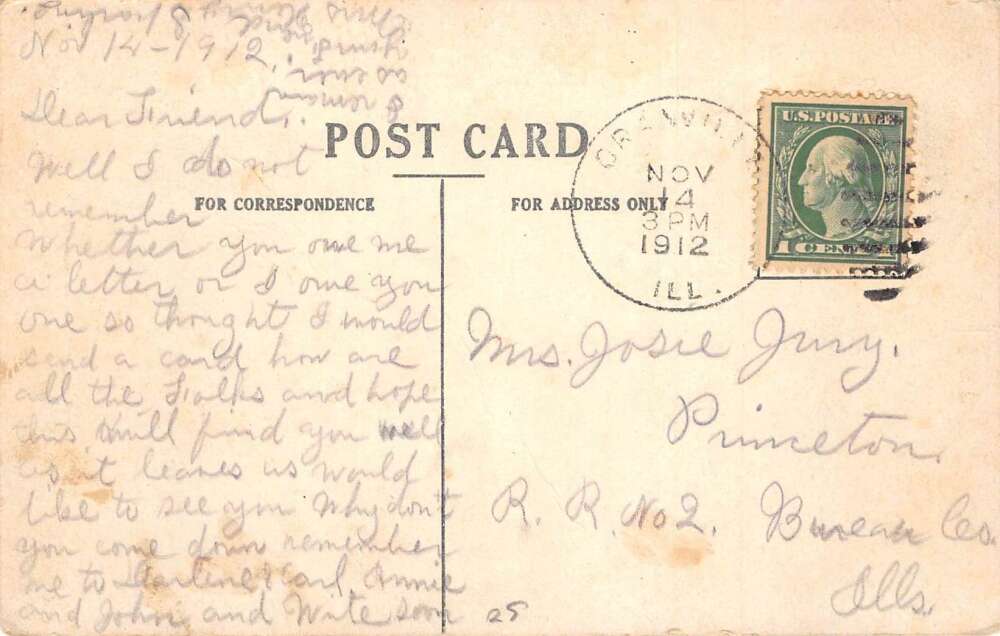 Nov 14-1912.
Dear Friend,
Well I do not
remember
Whether you owe me
a letter or I owe you
one so thought I would
send a card how are
all the Folks and hope
this will find you well
as it leaves us would
like to see you Why don't
you come down remember
me to Carl, Annie
and John and Write soon
I remain
as ever
your Friend
Mrs
POST CARD
FOR CORRESPONDENCE
FOR ADDRESS ONLY
GRANVILLE
NOV
14
3 PM
1912
ILL.
U.S. POSTAGE
1 CENT 1
Mrs. Josie Jury.
Princeton,
R. R. No 2. Bureau Co.
Ills.
25